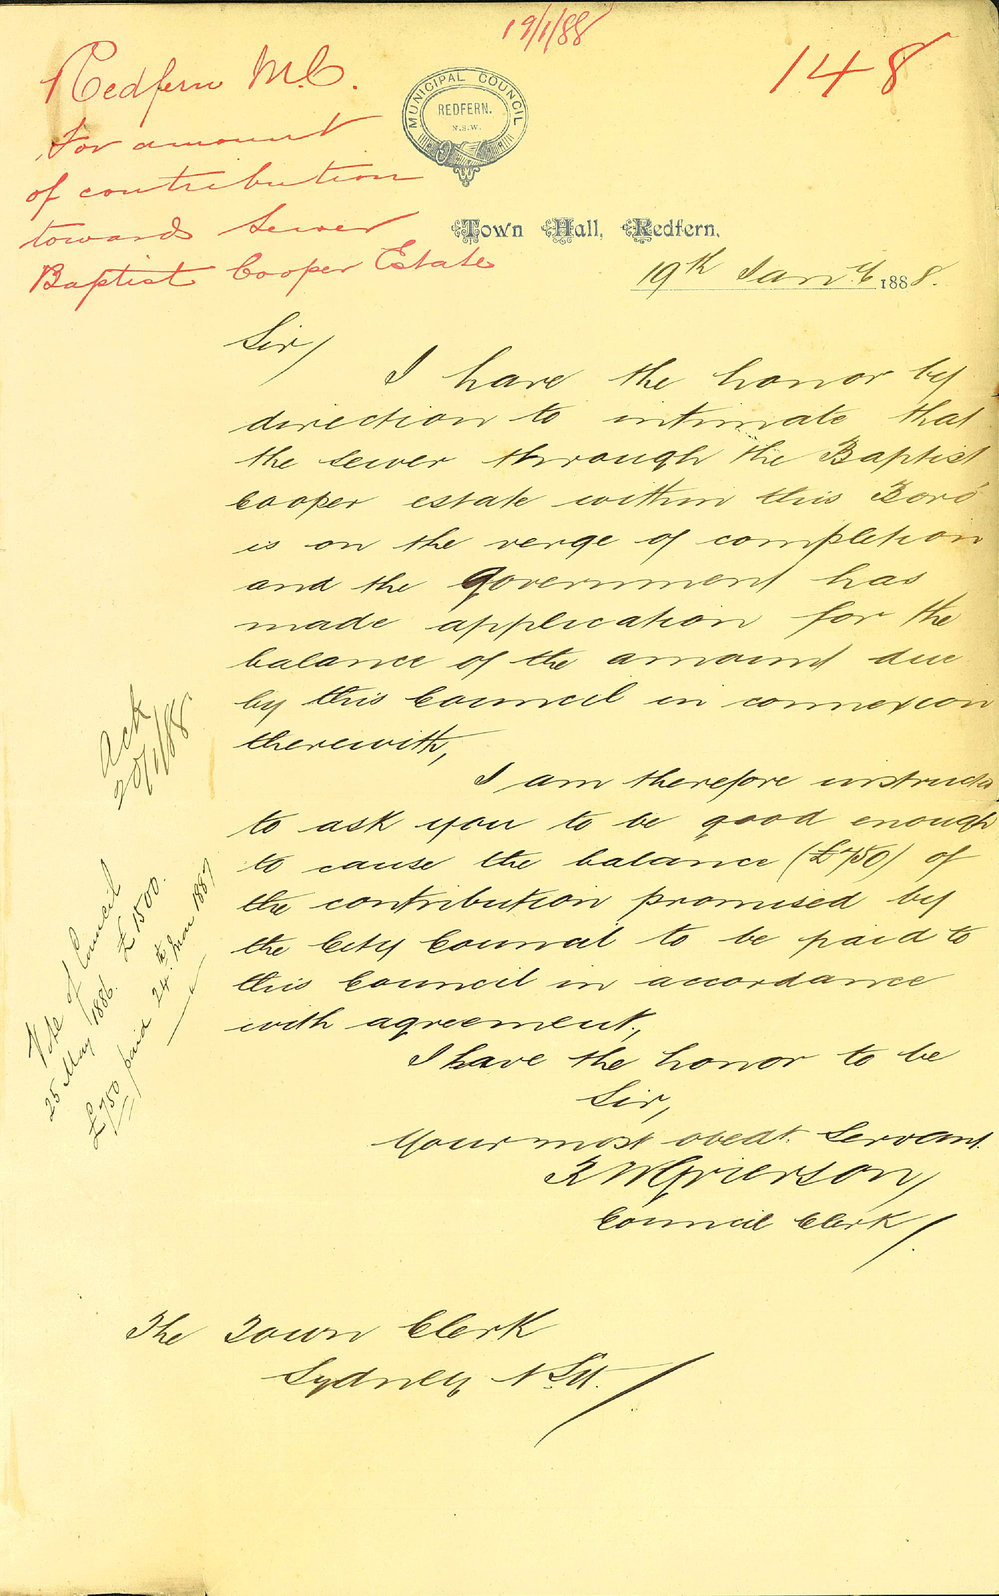 19/1/88
148
Redfern M.C.
For amount
of contribution
towards Sewer
Baptist Cooper Estate
MUNICIPAL COUNCIL
REDFERN.
N.S.W.
Town Hall, Redfern,
19th Jany 1888.
Sir/
I have the honor by
direction to intimate that
the sewer through the Baptist
Cooper estate within this Boro'
is on the verge of completion
and the Government has
made application for the
balance of the amount due
by this Council in connexion
therewith,
I am therefore instructed
to ask you to be good enough
to cause the balance (£750) of
the contribution promised by
the City Council to be paid to
this Council in accordance
with agreement,
I have the honor to be
Sir,
Your most obedt. Servant
Council Clerk/
The Town Clerk
Sydney N.S.W.
Ack
20/1/88
Vote of Council
25 May 1886. £1500.
£750 paid 24th Nov 1887